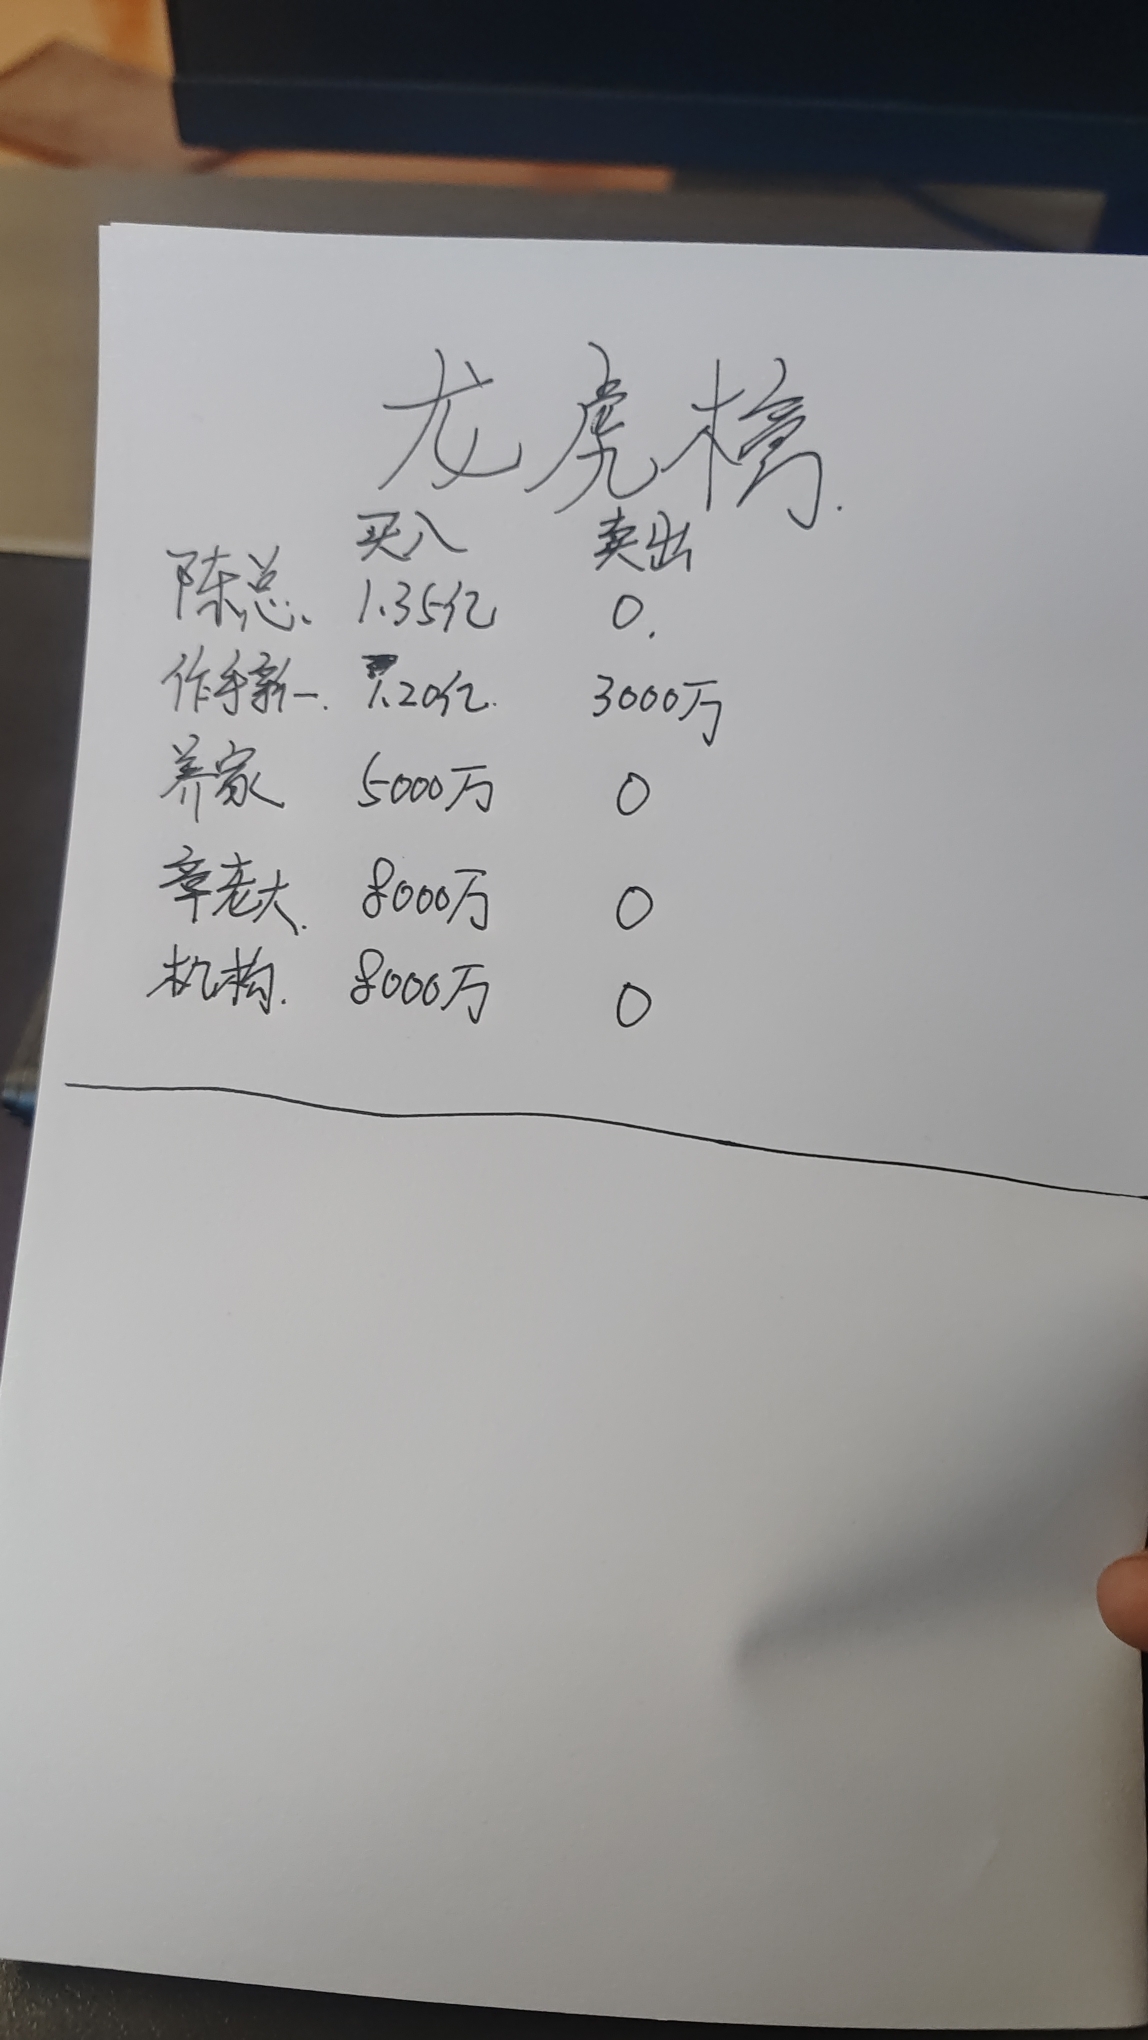 龙虎榜.
买入 卖出
陈总、 1.35亿 0.
作手新一. 1.20亿. 3000万
养家 5000万 0
章老大. 8000万 0
机构. 8000万 0